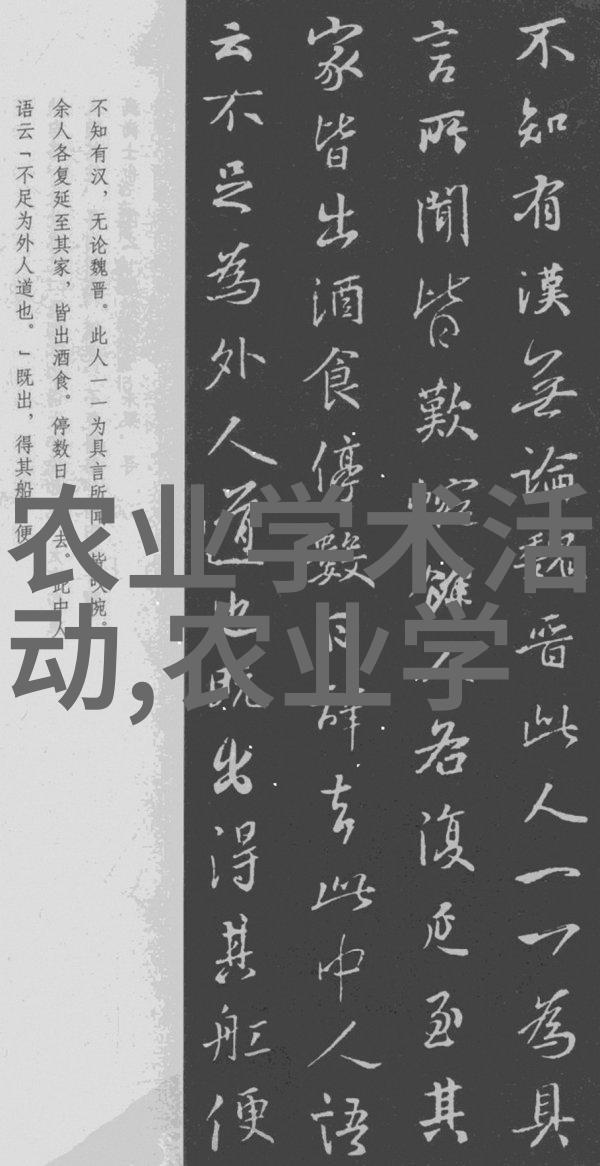 不知有漢無論魏晋此人一一為具
言所聞皆歎惋餘人各復延至其
家皆出酒食停數日辞去此中人語
云不足為外人道也既出得其船便
不知有汉，无论魏晋。此人一一为具言所闻，皆叹惋。
余人各复延至其家，皆出酒食。停数日，辞去。此中人
语云「不足为外人道也。」既出，得其船，便
农业学术活
动,农业学